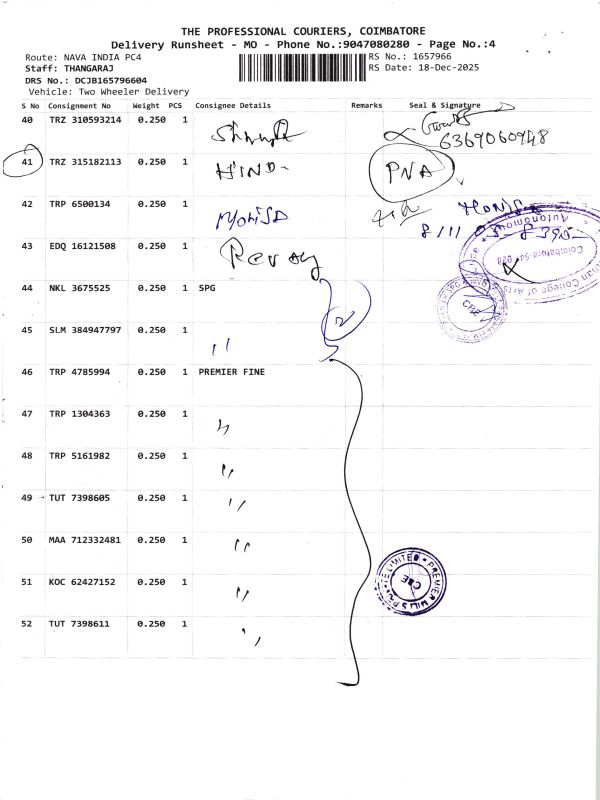 THE PROFESSIONAL COURIERS, COIMBATORE
Delivery Runsheet - MO - Phone No.:9047080280 - Page No.:4
Route: NAVA INDIA PC4 RS No.: 1657966
Staff: THANGARAJ RS Date: 18-Dec-2025
DRS No.: DCJB165796604
Vehicle: Two Wheeler Delivery
S No Consignment No Weight PCS Consignee Details Remarks Seal & Signature
40 TRZ 310593214 0.250 1 6369060948
41 TRZ 315182113 0.250 1 HIND- PNA
42 TRP 6500134 0.250 1 MONISA
43 EDQ 16121508 0.250 1
Autonomous
Coimbatore-
College of Arts
44 NKL 3675525 0.250 1 SPG
45 SLM 384947797 0.250 1 ''
46 TRP 4785994 0.250 1 PREMIER FINE
47 TRP 1304363 0.250 1 ''
48 TRP 5161982 0.250 1 ''
49 TUT 7398605 0.250 1 ''
50 MAA 712332481 0.250 1 ''
51 KOC 62427152 0.250 1 ''
PREMIER MILLS PRIVATE LIMITED
CBE
52 TUT 7398611 0.250 1 ''